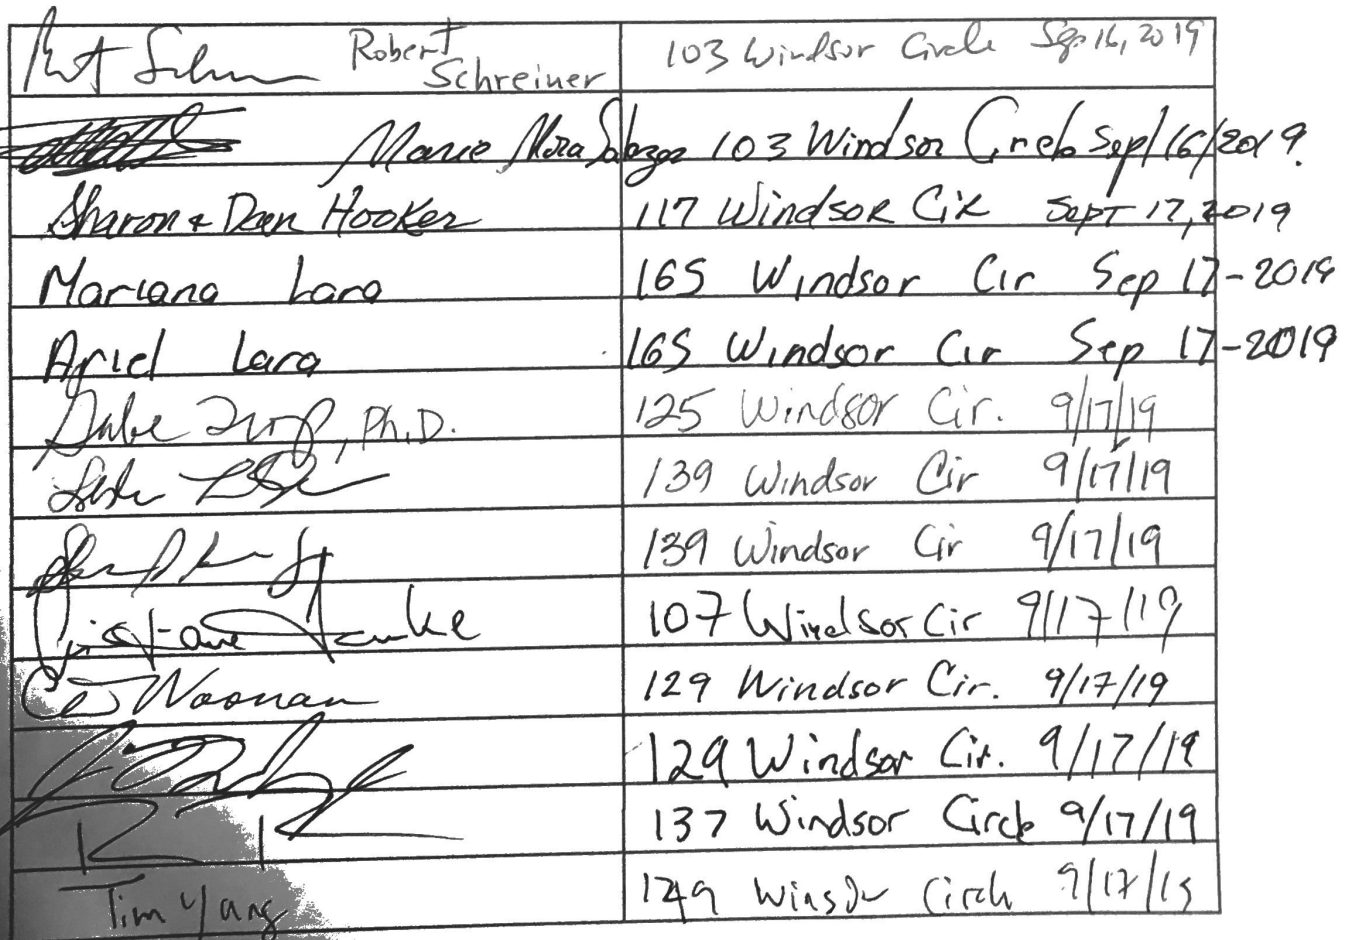 Robert Schreiner 103 Windsor Circle Sep 16, 2019
Marie Mora Salazar 103 Windsor Circle Sep/16/2019.
Sharon & Dean Hooker 117 Windsor Cir Sept 17, 2019
Mariana Lara 165 Windsor Cir Sep 17-2019
Ariel Lara 165 Windsor Cir Sep 17-2019
Gabe, Ph.D. 125 Windsor Cir. 9/17/19
139 Windsor Cir 9/17/19
139 Windsor Cir 9/17/19
Christiane 107 Windsor Cir 9/17/19
Noonan 129 Windsor Cir. 9/17/19
129 Windsor Cir. 9/17/19
137 Windsor Circle 9/17/19
Tim Yang 149 Winsdor Circle 9/17/19